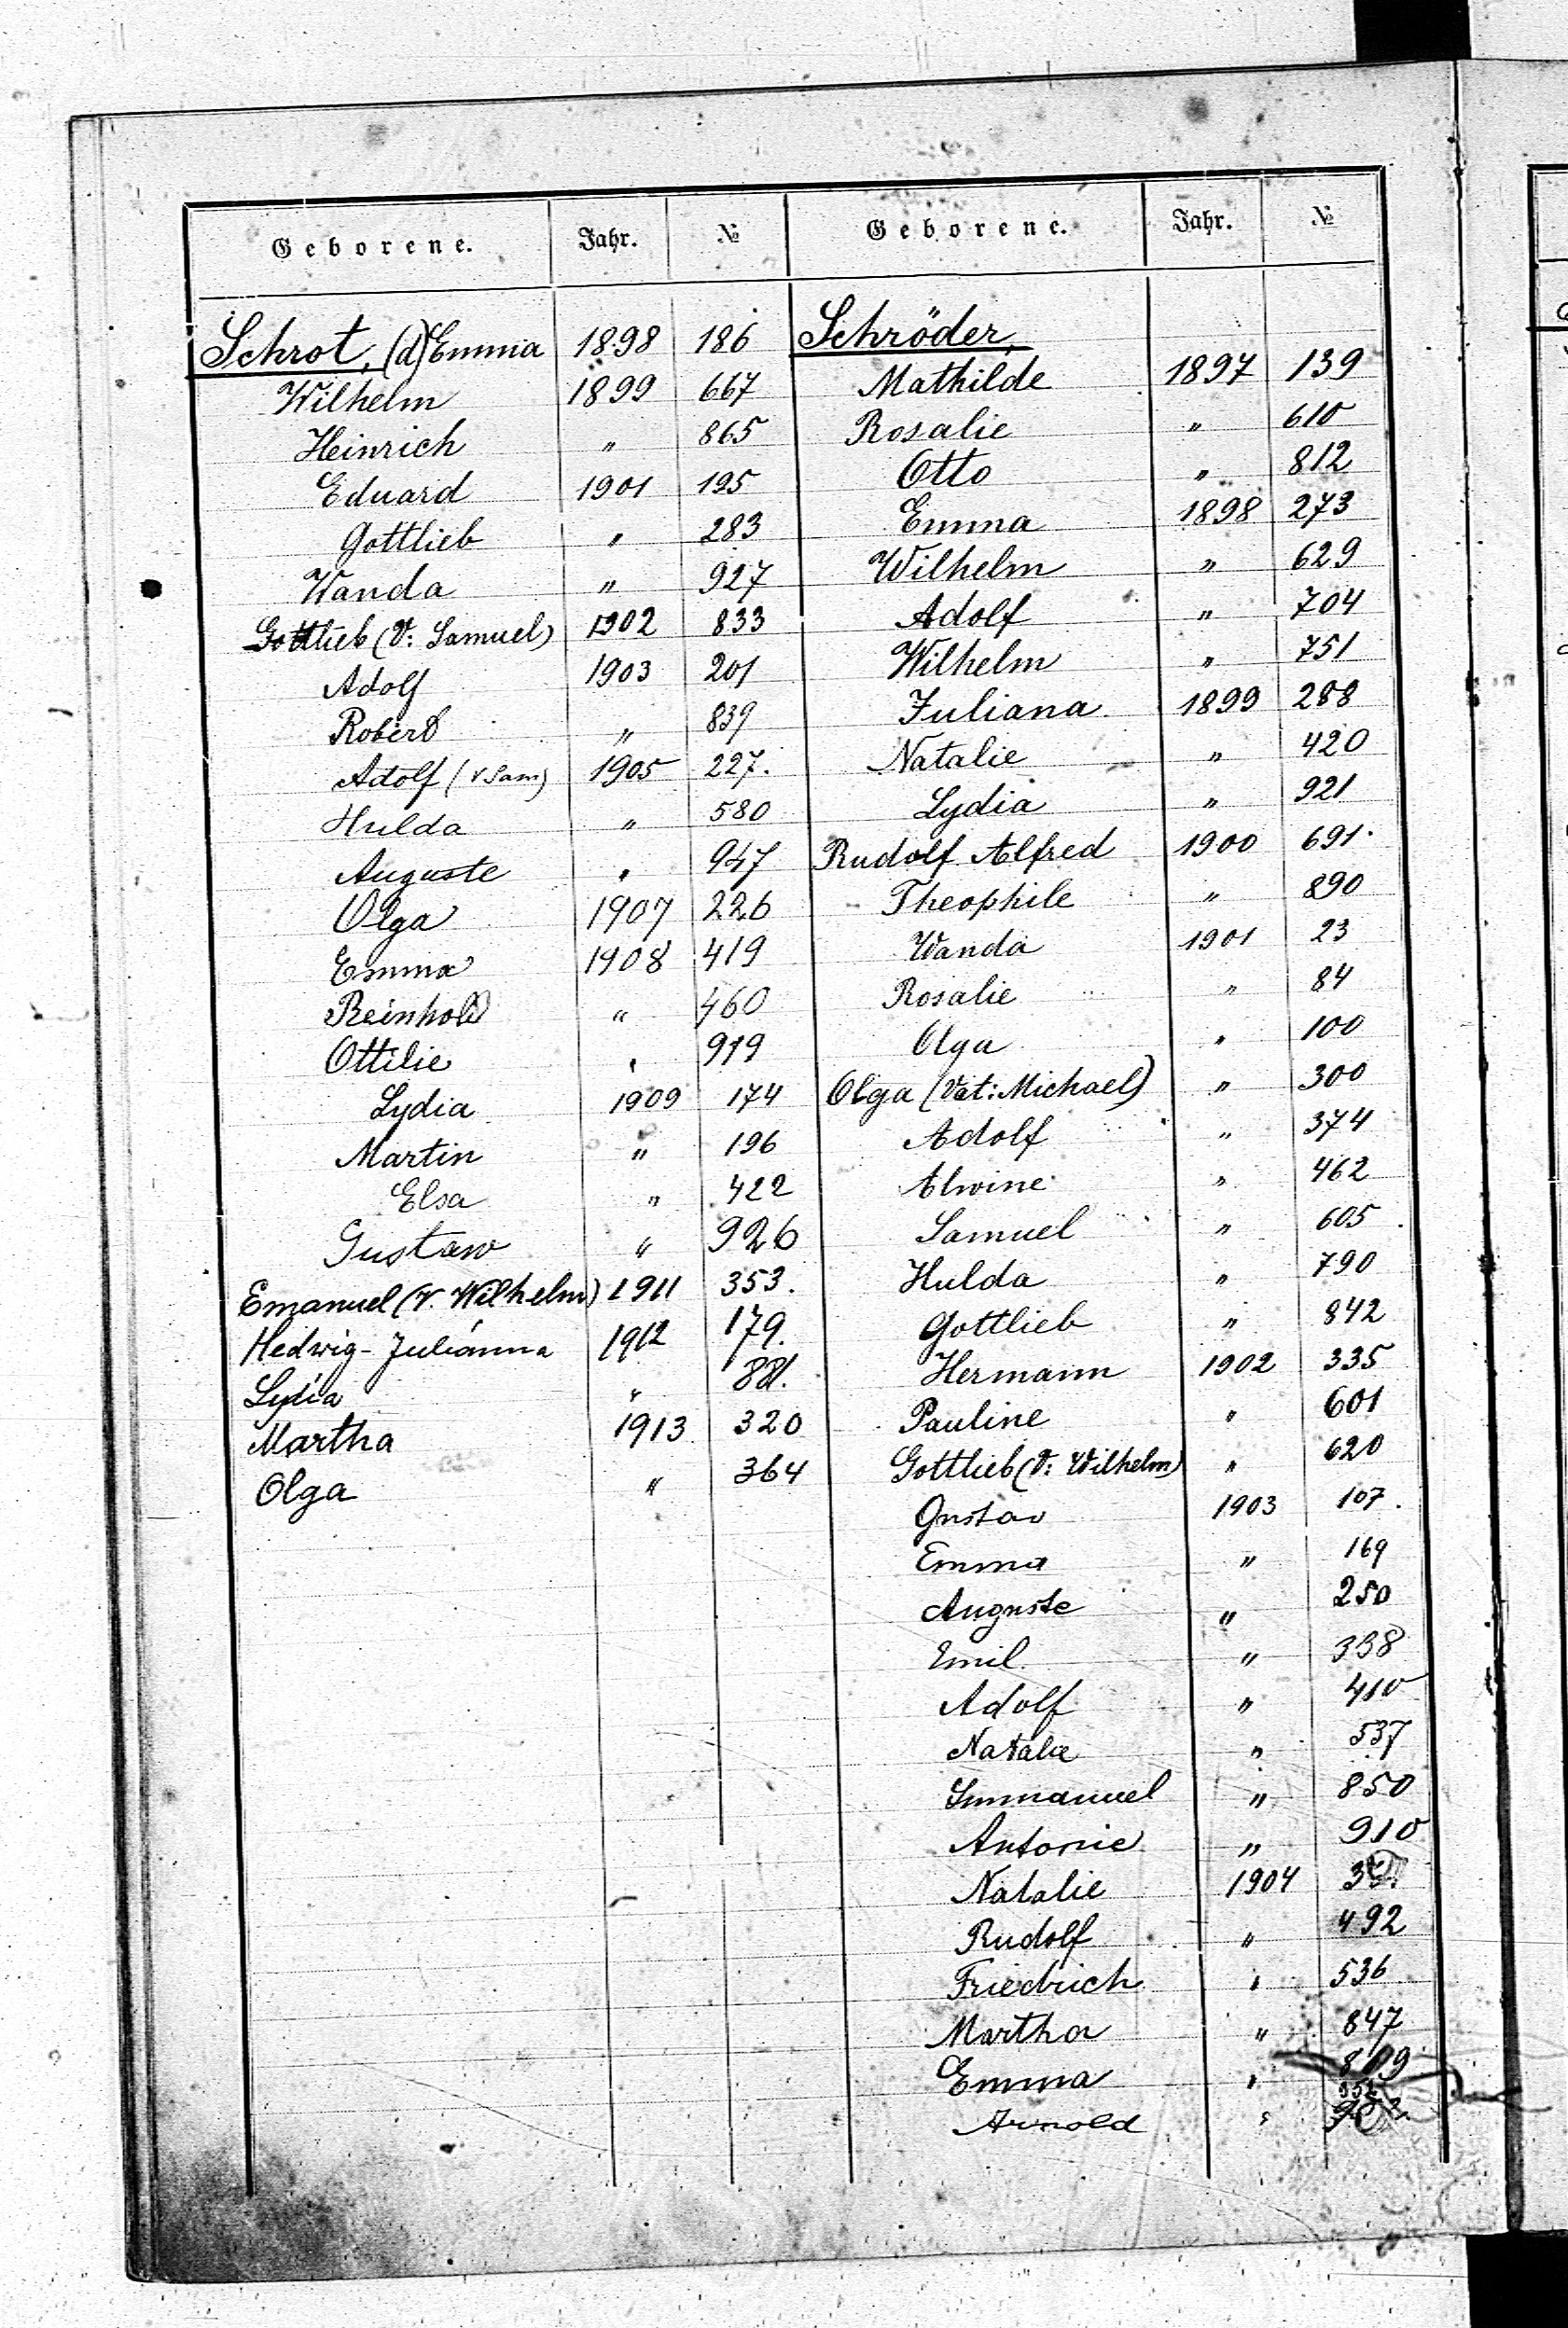 Geborene. Jahr. №
Schrot, (d) Emma 1898 186
Wilhelm 1899 667
Heinrich " 865
Eduard 1901 195
Gottlieb " 283
Wanda " 927
Gottlieb (V: Samuel) 1902 833
Adolf 1903 201
Robert " 839
Adolf (V Sam) 1905 227.
Hulda " 580
Auguste " 947
Olga 1907 226
Emma 1908 419
Reinhold " 460
Ottilie " 919
Lydia 1909 174
Martin " 196
Elsa " 422
Gustaw " 926
Emanuel (V. Wilhelm) 1911 353.
Hedwig-Julianna 1912 179.
Lydia " 881.
Martha 1913 320
Olga " 364
Geborene. Jahr. №
Schröder,
Mathilde 1897 139
Rosalie " 610
Otto " 812
Emma 1898 273
Wilhelm " 629
Adolf " 704
Wilhelm " 751
Juliana 1899 288
Natalie " 420
Lydia " 921
Rudolf Alfred 1900 691.
Theophile " 890
Wanda 1901 23
Rosalie " 84
Olga " 100
Olga (Vat: Michael) " 300
Adolf " 374
Alwine " 462
Samuel " 605
Hulda " 790
Gottlieb " 842
Hermann 1902 335
Pauline " 601
Gottlieb (V: Wilhelm) " 620
Gustav 1903 107.
Emma " 169
Auguste " 250
Emil " 338
Adolf " 410
Natalie " 537
Immanuel " 850
Antonie " 910
Natalie 1904
Rudolf " 492
Friedrich " 536
Martha " 847
Emma "
Arnold "